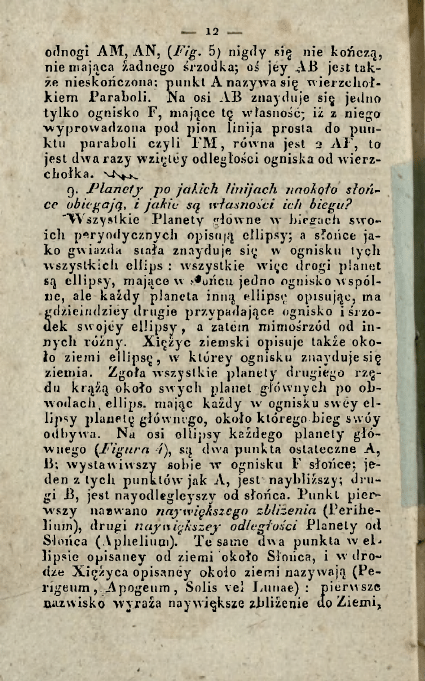 — 12 —
odnogi AM, AN, (Fig. 5) nigdy się nie kończą,
nie mająca żadnego śrzodka; oś jéy AB jest tak-
że nieskończona; punkt A nazywa się wierzchoł-
kiem Paraboli. Na osi AB znayduje się jedno
tylko ognisko F, mające tę własność; iż z niego
wyprowadzona pod pion linija prosta do pun-
ktu paraboli czyli FM, równa jest 2 AF, to
jest dwa razy wziętéy odległości ogniska od wierz-
chołka.
9. Planety po jakich linijach naokoło słoń-
ce obiegają, i jakie są własności ich biegu?
Wszystkie Planety główne w biegach swo-
ich peryodycznych opisują ellipsy; a słońce ja-
ko gwiazda stała znayduje się w ognisku tych
wszystkich ellips: wszystkie więc drogi planet
są ellipsy, mające w słońcu jedno ognisko wspól-
ne, ale każdy planeta inną ellipsę opisując, ma
gdzieindziey drugie przypadające ognisko i śrzo-
dek swojéy ellipsy, a zatém mimośrzód od in-
nych różny. Xiężyc ziemski opisuje także oko-
ło ziemi ellipsę, w którey ognisku znayduje się
ziemia. Zgoła wszystkie planety drugiego rzę-
du krążą około swych planet głównych po ob-
wodach ellips, mając każdy w ognisku swéy el-
lipsy planetę głównego, około którego bieg swóy
odbywa. Na osi ellipsy każdego planety głó-
wnego (Figura 4), są dwa punkta ostateczne A,
B; wystawiwszy sobie w ognisku F słońce; je-
den z tych punktów jak A, jest naybliższy; dru-
gi B, jest nayodlegleyszy od słońca. Punkt pier-
wszy nazwano naywiększego zbliżenia (Perihe-
lium), drugi naywiększey odległości Planety od
Słońca (Aphelium). Te same dwa punkta w el-
lipsie opisaney od ziemi około Słońca, i w dro-
dze Xiężyca opisanéy około ziemi nazywają (Pe-
rigeum, Apogeum, Solis vel Lunae): pierwsze
nazwisko wyraża naywiększe zbliżenie do Ziemi,